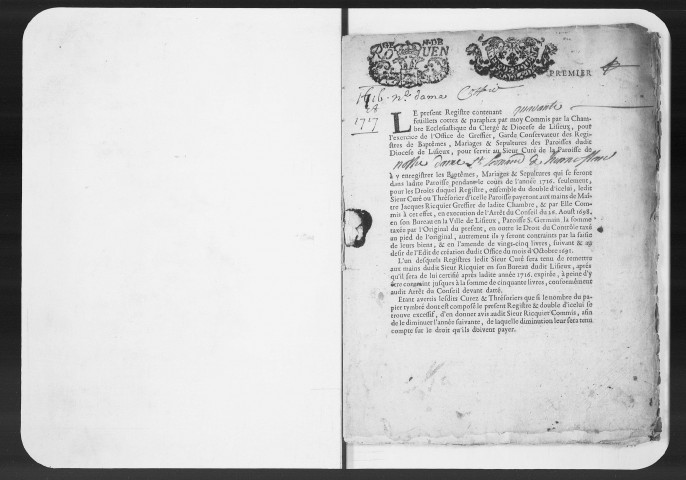 GEN DE
ROUEN
PREMIER
1716. nre dame
&
1717
quarante
LE present Registre contenant
feuillets cottez & paraphez par moy Commis par la Cham-
bre Ecclesiastique du Clergé & Diocese de Lisieux, pour
l'exercice de l'Office de Greffier, Garde Conservateur des Regis-
tres de Baptêmes, Mariages & Sepultures des Paroisses dudit
Diocese de Lisieux, pour servir au Sieur Curé de la Paroisse de
nostre dame de
à y enregistrer les Baptêmes, Mariages & Sepultures qui se feront
dans ladite Paroisse pendant le cours de l'année 1716. seulement,
pour les Droits duquel Registre, ensemble du double d'icelui, ledit
Sieur Curé ou Thrésorier d'icelle Paroisse payeront aux mains de Maî-
tre Jacques Ricquier Greffier de ladite Chambre, & par Elle Com-
mis à cet effet, en execution de l'Arrêt du Conseil du 26. Aoust 1698,
en son Bureau en la Ville de Lisieux, Paroisse S. Germain la somme
taxée par l'Original du present, en outre le Droit du Contrôle taxé
au pied de l'original, autrement ils y seront contraints par la saisie
de leurs biens, & en l'amende de vingt-cinq livres, suivant & au
desir de l'Edit de création dudit Office du mois d'Octobre 1691.
L'un desquels Registres ledit Sieur Curé sera tenu de remettre
aux mains dudit Sieur Ricquier en son Bureau dudit Lisieux, après
qu'il sera de lui certifié après ladite année 1716. expirée, à peine d'y
être contraint jusques à la somme de cinquante livres, conformément
audit Arrêt du Conseil devant datté.
Etant avertis lesdits Curez & Thrésoriers que si le nombre du pa-
pier tymbré dont est composé le present Registre & double d'icelui se
trouve excessif, d'en donner avis audit Sieur Ricquier Commis, afin
de le diminuer l'année suivante, de laquelle diminution leur sera tenu
compte sur le droit qu'ils doivent payer.